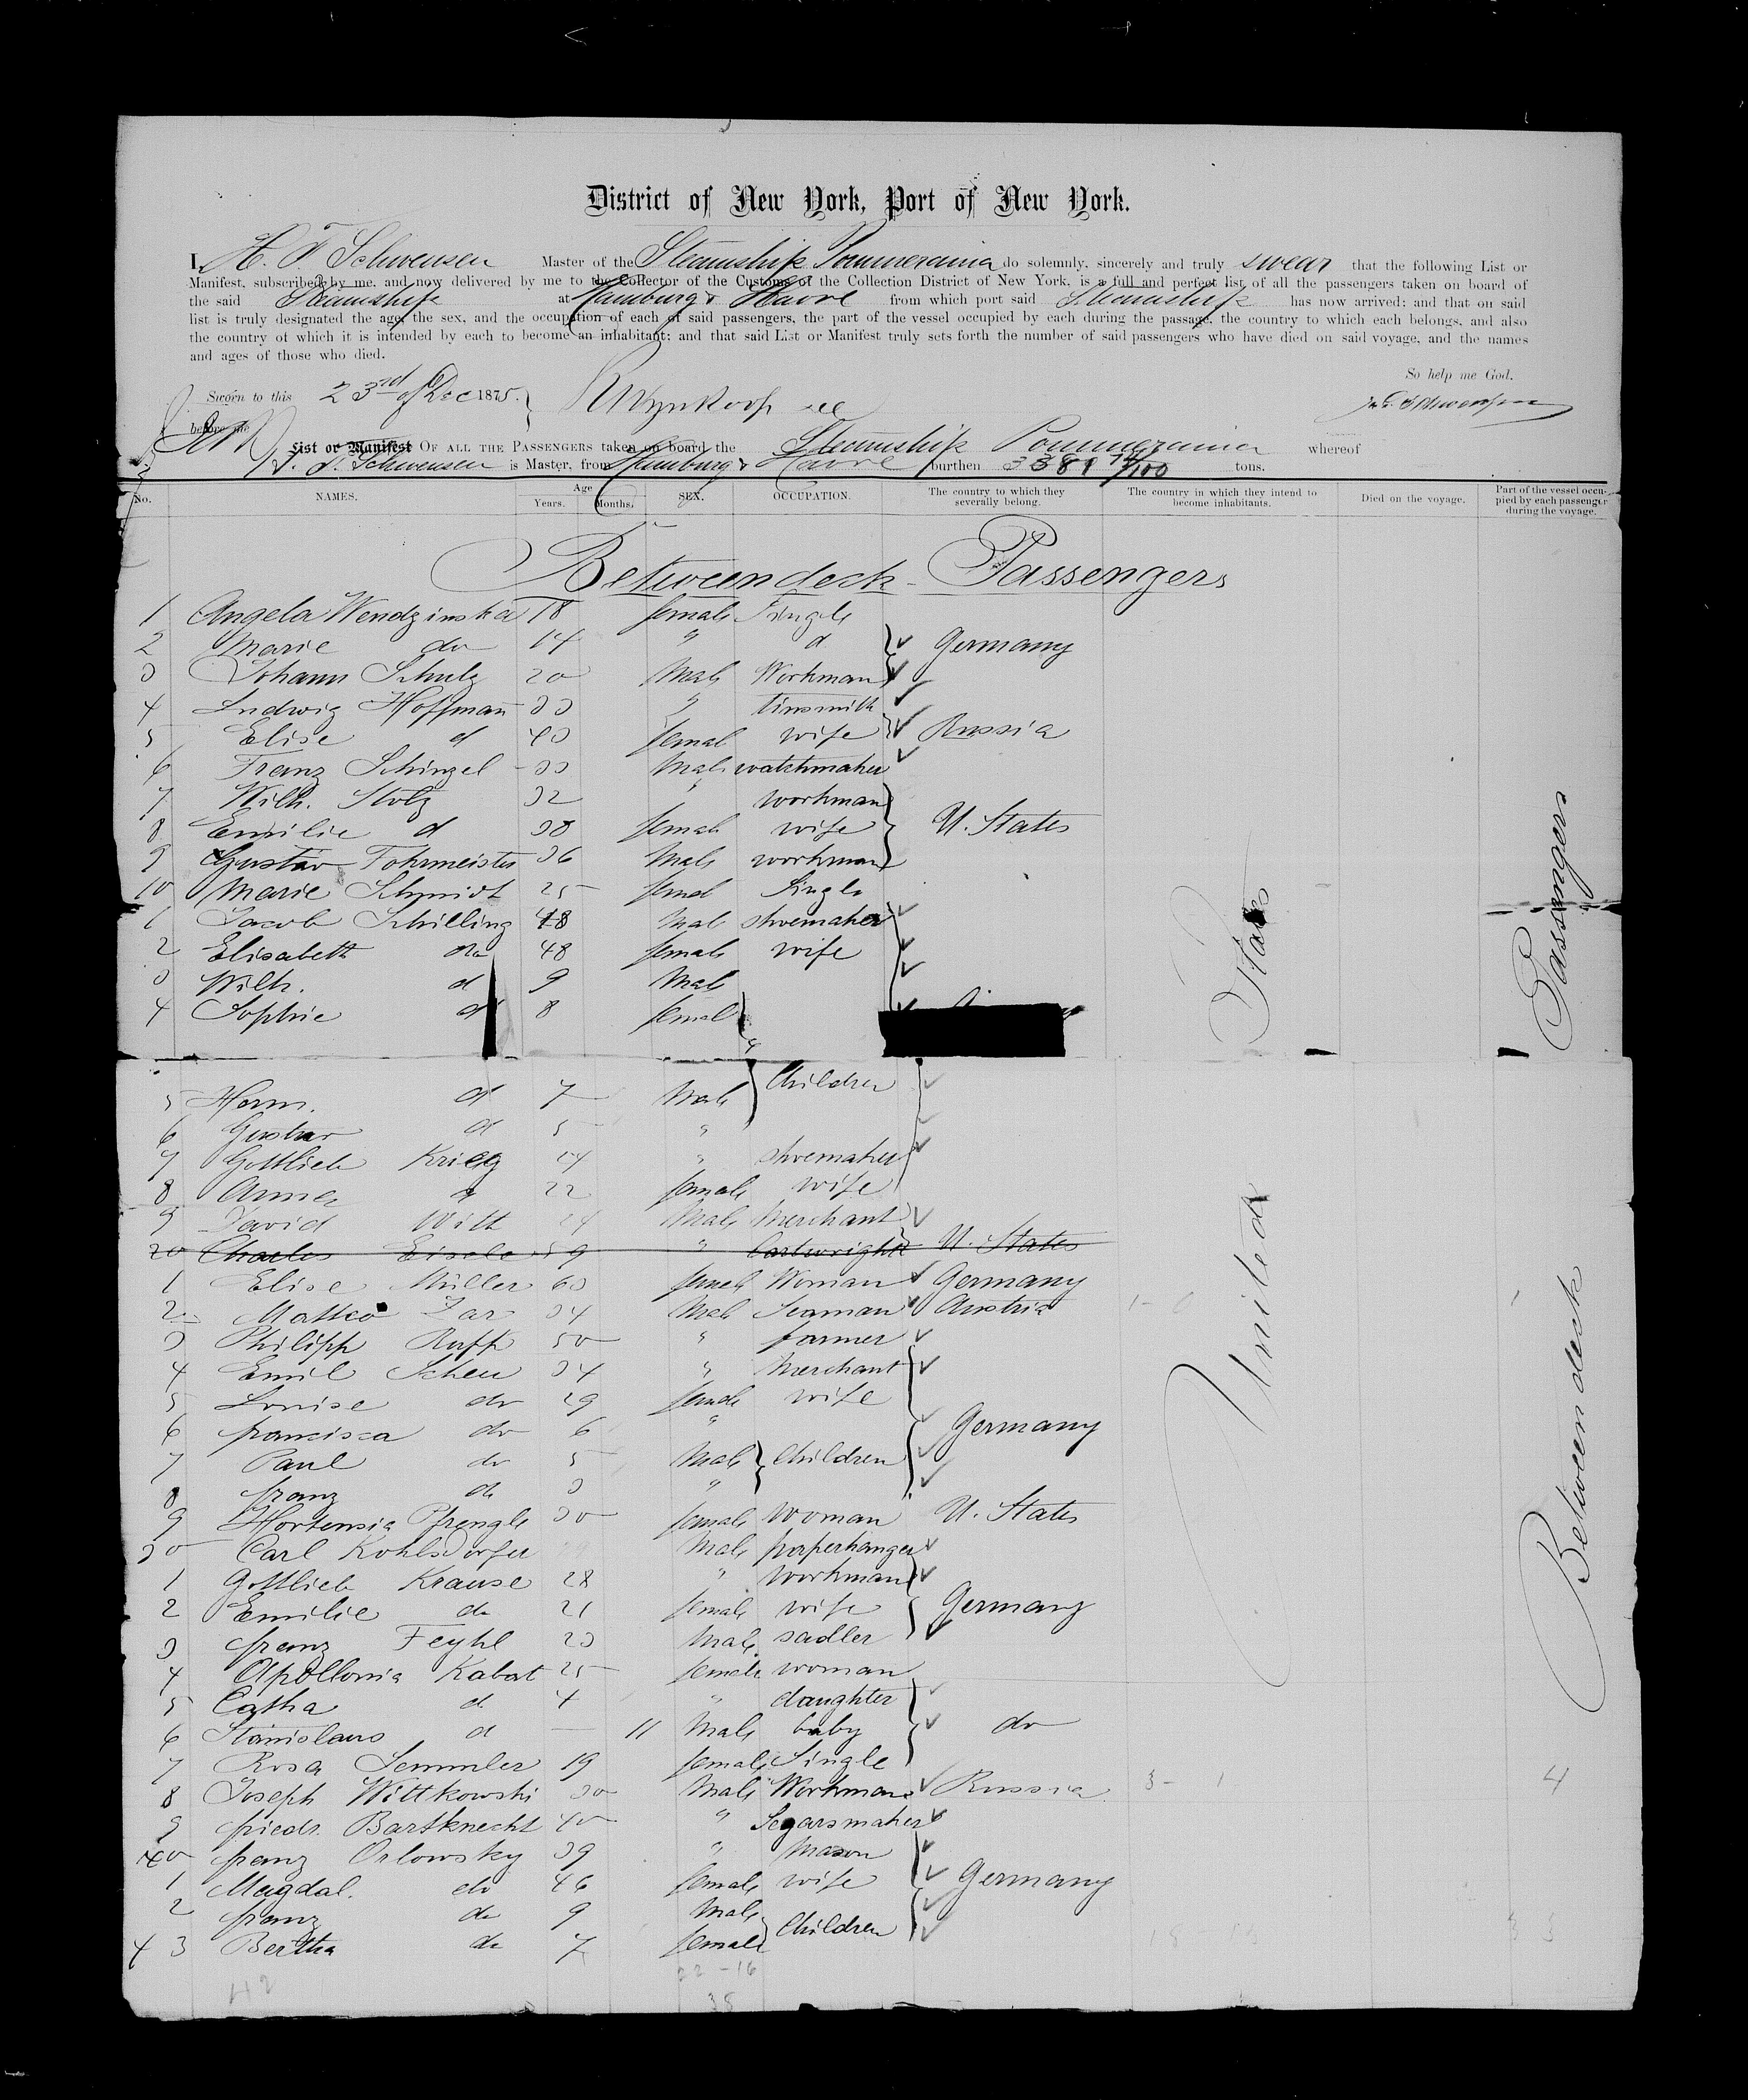 District of New York, Port of New York.
I, H. F. Schwensen Master of the Steamship Pommerania do solemnly, sincerely and truly swear that the following List or
Manifest, subscribed by me, and now delivered by me to the Collector of the Customs of the Collection District of New York, is a full and perfect list of all the passengers taken on board of
the said Steamship at Hamburg & Havre from which port said Steamship has now arrived; and that on said
list is truly designated the age, the sex, and the occupation of each of said passengers, the part of the vessel occupied by each during the passage, the country to which each belongs, and also
the country of which it is intended by each to become an inhabitant; and that said List or Manifest truly sets forth the number of said passengers who have died on said voyage, and the names
and ages of those who died.
So help me God.
Sworn to this 23rd of Dec 1875.
before me
List or Manifest OF ALL THE PASSENGERS taken on board the Steamship Pommerania whereof
H. F. Schwensen is Master, from Hamburg & Havre burthen 3381 74/100 tons.
No. NAMES. Age Years. Months. SEX. OCCUPATION. The country to which they severally belong. The country in which they intend to become inhabitants. Died on the voyage. Part of the vessel occupied by each passenger during the voyage.
Between deck Passengers
1 Angela Wendzinska 18 female Single
2 Marie do 14 " d Germany
3 Johann Schulz 20 Male Workman
4 Ludwig Hoffmann 33 " tinsmith
5 Elise d 40 femal wife Russia
6 Franz Schinzel 33 Male watchmaker
7 Wilh. Stolz 32 " workman
8 Emilie d 38 femal wife U. States
9 Gustav Fohrmeister 36 Male workman
10 Marie Schmidt 25 femal Single
1 Jacob Schilling 48 Mal shoemaker
2 Elisabeth do 48 female wife
3 Wilh. d 9 Mal
4 Sophie d 8 femal
5 Herm. d 7 Male Children
6 Gustav d 5 "
7 Gottlieb Krieg 24 " shoemaker
8 Anna d 22 female wife
9 David Witt 24 Male Merchant
20 Charles Eisele 59 " Cartwright U. States
1 Elise Müller 60 female Woman Germany
2 Matteo Zar 34 Male Seaman Austria
3 Philipp Ruff 50 " farmer
4 Emil Scheu 34 " Merchant
5 Louise do 29 female wife
6 francisca do 6 " Germany
7 Paul do 5 Male Children
8 franz do 3 "
9 Hortensia Pfrengle 30 female woman U. States
30 Carl Kohlsdorfer Male paperhanger
1 Gottlieb Krause 28 " workman
2 Emilie do 21 female wife Germany
3 franz Feyhl 23 Male sadler
4 Apollonia Kabat 25 female woman
5 Catha d 4 " daughter
6 Stanislaus d — 11 Male baby do
7 Rosa Semmler 19 female Single
8 Joseph Wittkowski 30 Male Workman Russia 3 - 1 4
9 friedr. Bartknecht 40 " Segarsmaker
40 franz Orlowsky 39 " Mason
1 Magdal. do 46 female wife Germany
2 franz do 9 Male Children
43 Bertha do 7 female
United States
Between deck Passengers
42
22 - 16
38